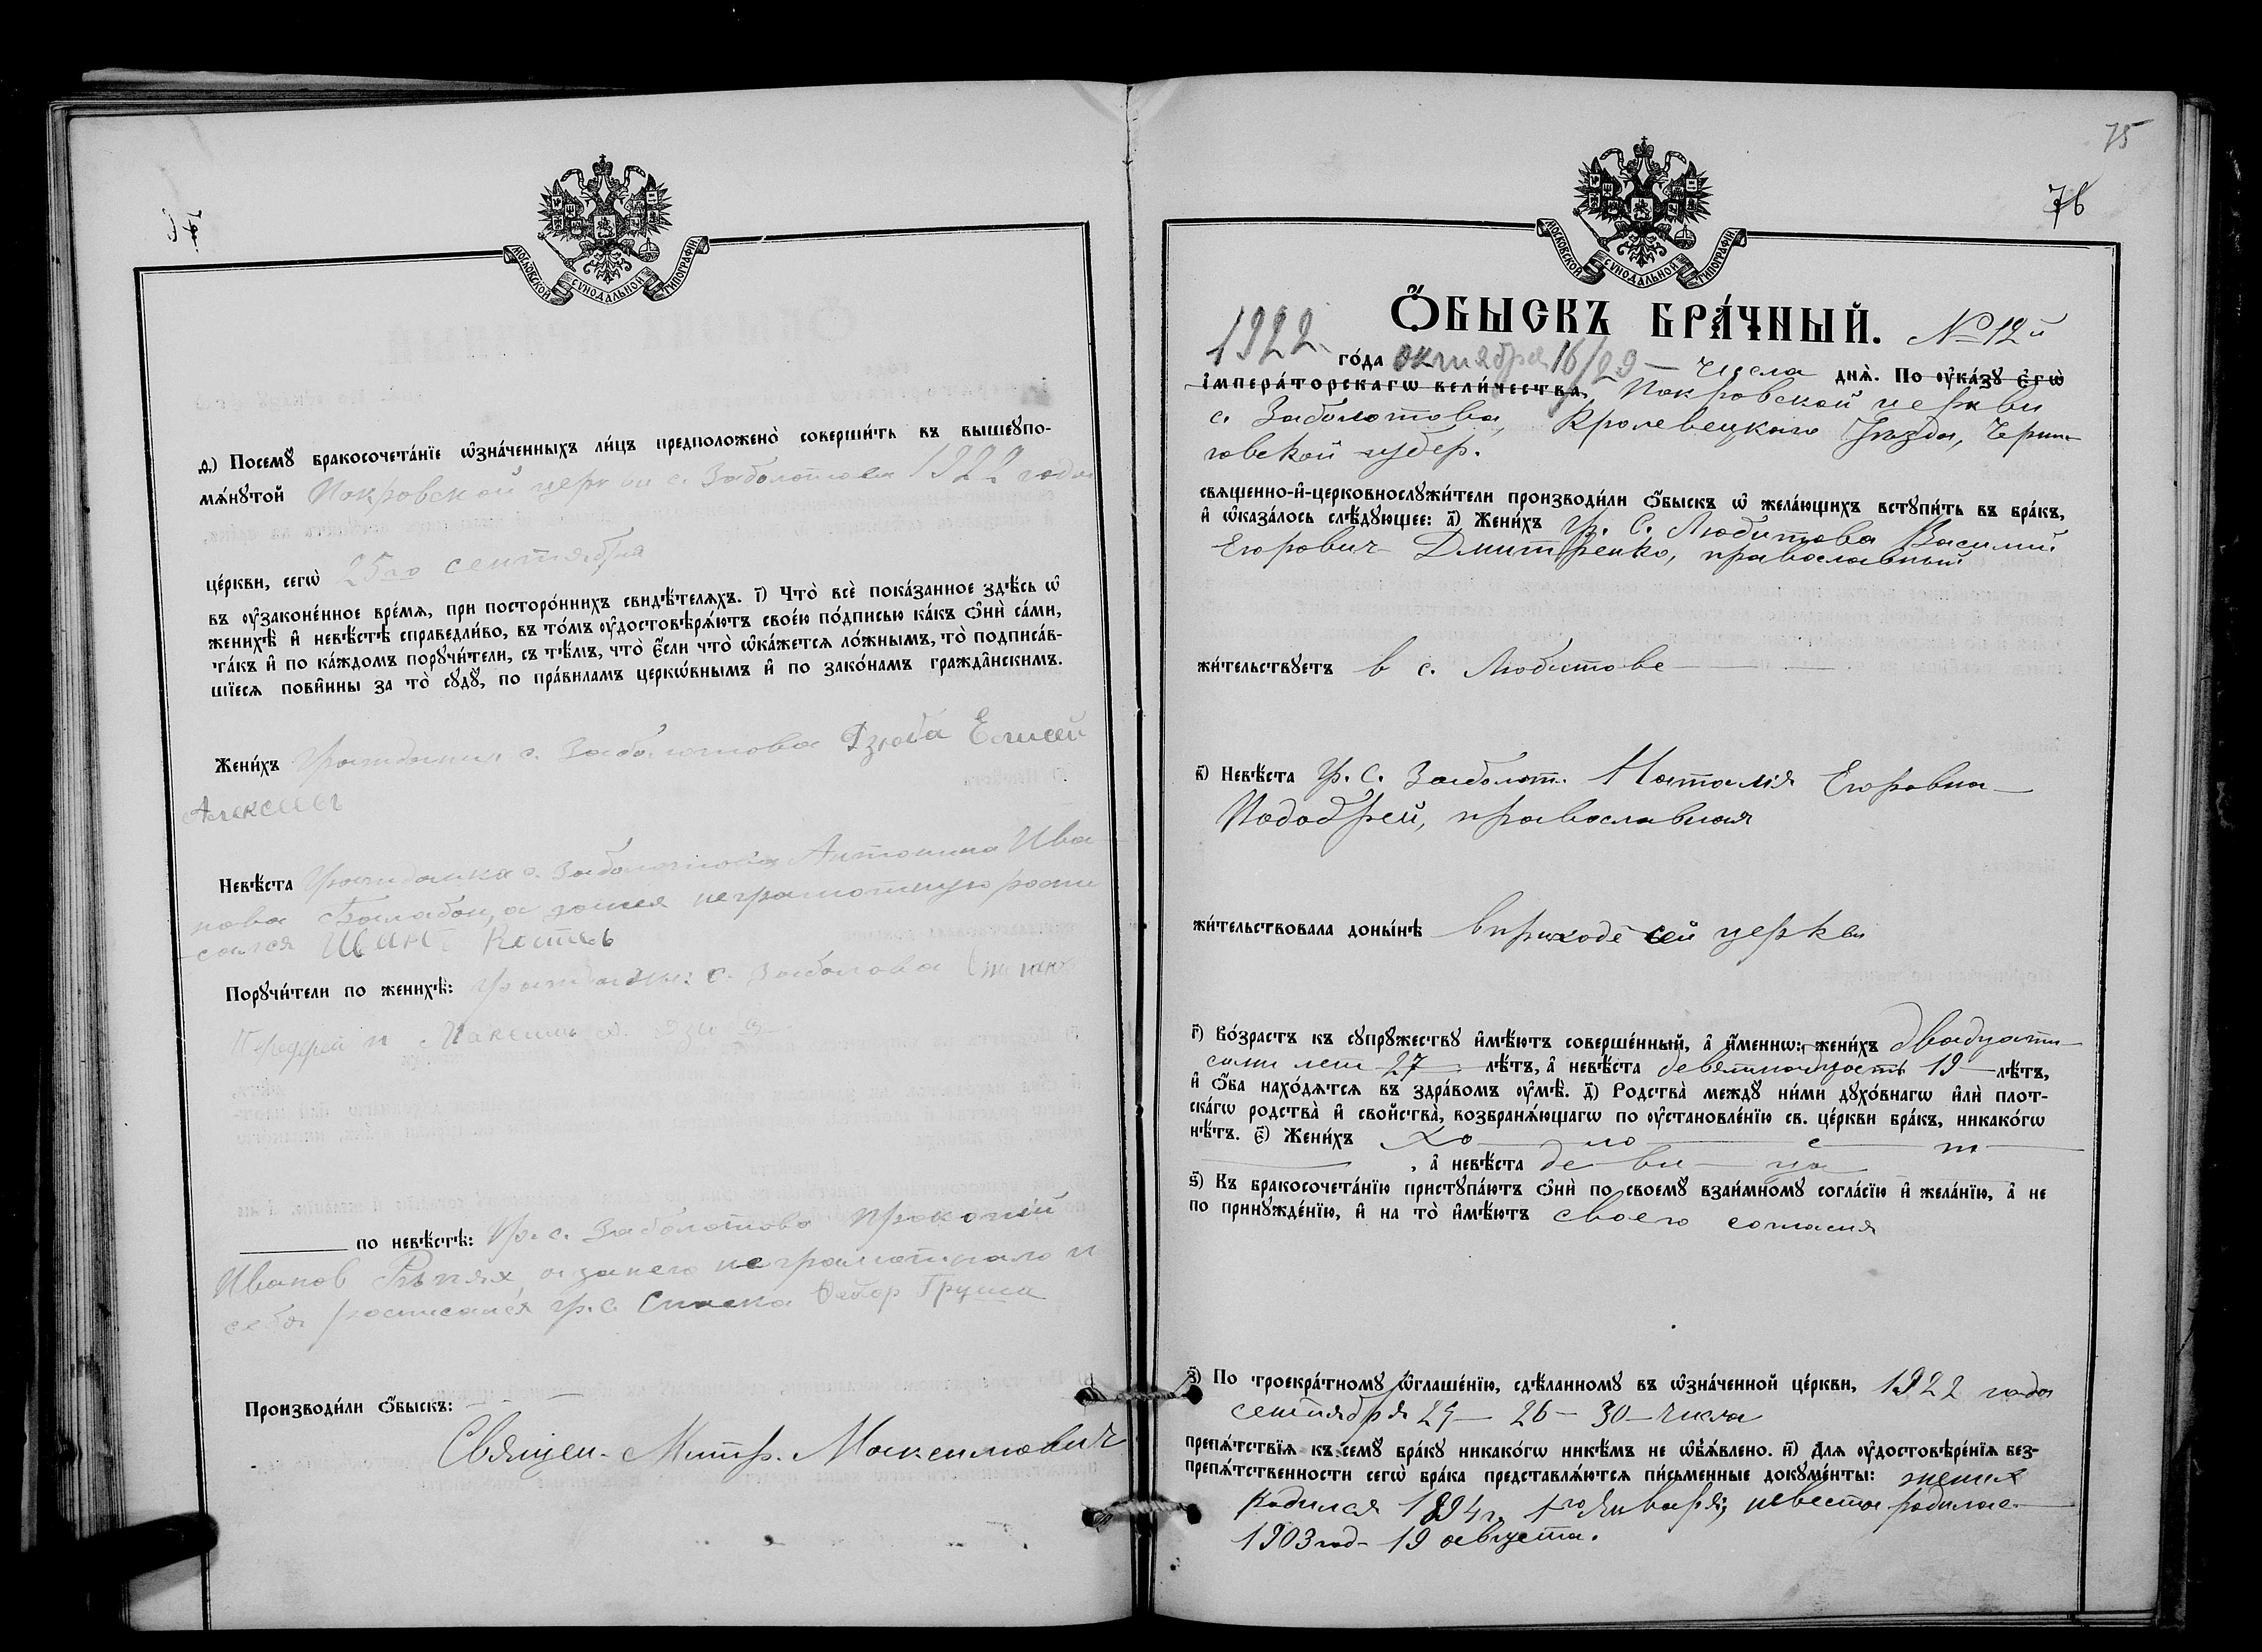 МОСКОВСКОЙ СѴНОДАЛЬНОЙ ТИПОГРАФІИ
д҃.) Посемꙋ̀ бракосочета́нїе ѡ҆зна́ченныхъ ли́цъ предположено̀ соверши́ть въ вышеꙋпо-
мѧ́нꙋтой Покровской церкви с. Заболотова 1922 года
це́ркви, сегѡ̀ 25го сентября
въ ᲂу҆законе́нное вре́мѧ, при посторо́ннихъ свидѣ́телѧхъ. і҃) Что̀ всѐ пока́занное здѣ́сь ѡ҆
женихѣ̀ и҆ невѣ́стѣ справедли́во, въ то́мъ ᲂу҆достовѣрѧ́ютъ свое́ю по́дписью ка́къ ѻ҆нѝ са́ми,
та́къ и҆ по ка́ждомъ порꙋчи́тели, съ тѣ́мъ, что̀ є҆́сли что̀ ѡ҆ка́жетсѧ ло́жнымъ, то̀ подписа́в-
шїесѧ пови́нны за то̀ сꙋдꙋ̀, по пра́виламъ церкѡ́внымъ и҆ по зако́намъ гражда̑нскимъ.
Жени́хъ Гражданин с. Заболотова Дзюба Елисей
Алексеев
Невѣ́ста Гражданка с. Заболотова Антонина Ива
нова Балабон, а занея неграмотную роспи
сался Иван Костев
Порꙋчи́тели по женихѣ̀: граждани: с.
и
по невѣ́стѣ: Гр. с. Заболотова Прокопий
Иванов Репях, а занего неграмотнаго и
себя росписался гр. с. Спаска Федор Груша
Производи́ли ѻ҆́быскъ:
Священ. Митр. Максимович
75
76
МОСКОВСКОЙ СѴНОДАЛЬНОЙ ТИПОГРАФІИ
Ѻ҆́БЫСКЪ БРА́ЧНЫЙ. № 12й
1922 го́да октября 16/29 — числа днѧ̀. По ᲂу҆ка́зꙋ є҆гѡ̀
і҆мпера́торскагѡ вели́чества, Покровской церкви
с. Заболотова, Кролевецкого Уезда, Черни-
говской губер.
свѧщенно-и҆-церковнослꙋжи́тели производи́ли ѻ҆́быскъ ѡ҆ жела́ющихъ встꙋпи́ть въ бра́къ,
и҆ ѡ҆каза́лось слѣ́дꙋющее: а҃) Жени́хъ гр. с. Любитова Василий
Егорович Дмитренко, православный
жи́тельствꙋетъ в с. Любитове
в҃) Невѣ́ста гр. с. Заболот. Наталія Егоровна
Пододрей, православная
жи́тельствовала доны́нѣ в приходе сей церкви
г҃) Во́зрастъ къ сꙋпрꙋ́жествꙋ и҆мѣ́ютъ соверше́нный, а҆ и҆́меннѡ: жени́хъ двадцати
семи лет 27 лѣ́тъ, а҆ невѣ́ста девятнадцать 19 лѣ́тъ,
и҆ ѻ҆́ба нахо́дѧтсѧ въ здра́вомъ ᲂу҆мѣ̀. д҃) Родства̀ междꙋ̀ ни́ми дꙋхо́внагѡ и҆лѝ плот-
ска́гѡ родства̀ и҆ свойства̀, возбранѧ́ющагѡ по ᲂу҆становле́нїю св. це́ркви бра́къ, никако́гѡ
нѣ́тъ. є҃) Жени́хъ хо — ло — с — т
, а҆ невѣ́ста де — ви — ца
ѕ҃) Къ бракосочета́нїю пристꙋпа́ютъ ѻ҆нѝ по своемꙋ̀ взаи́мномꙋ согла́сїю и҆ жела́нїю, а҆ не
по принꙋжде́нїю, и҆ на то̀ и҆мѣ́ютъ своего согласия
з҃) По троекра́тномꙋ ѡ҆глаше́нїю, сдѣ́ланномꙋ въ ѡ҆зна́ченной це́ркви, 1922 года
сентября 25 — 26 — 30 — числа
препѧ́тствїѧ къ семꙋ̀ бра́кꙋ никако́гѡ никѣ́мъ не ѡ҆б̾ѧ́влено. и҃) Длѧ ᲂу҆достовѣре́нїѧ без-
препѧ́тственности сегѡ̀ бра́ка представлѧ́ютсѧ пи́сьменные докꙋме́нты: жених
родился 1894 г. 1го Января; невеста родилас
1903 год- 19 августа.